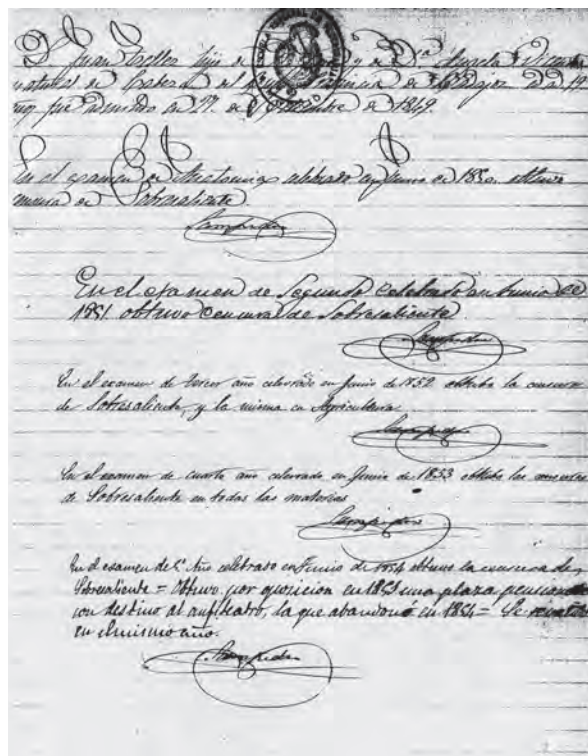 Dn Juan Tellez hijo de y de Da Angela Vicen
natural de Cabeza del provincia de Badajoz
fue admitido en 27. de Setiembre de 1849.
En el examen de celebrado en Junio de 1850. obtuvo
censura de Sobresaliente
Sampedro
En el examen de Segundo celebrado en Junio de
1851 obtuvo censura de Sobresaliente
Sampedro
En el examen de tercer año celevrado en Junio de 1852 obtubo la censura
de Sobresaliente, y la misma en Agricultura
Sampedro
En el examen de cuarto año celevrado en Junio de 1853 obtubo las censuras
de Sobresaliente en todas las materias
Sampedro
En el examen de 5º Año celebrado en Junio de 1854 obtuvo la censura de
Sobresaliente = Obtuvo por oposicion en 1853 una plaza pensionada
con destino al anfiteatro, la que abandonó en 1854 = Se
en el mismo año.
Sampedro